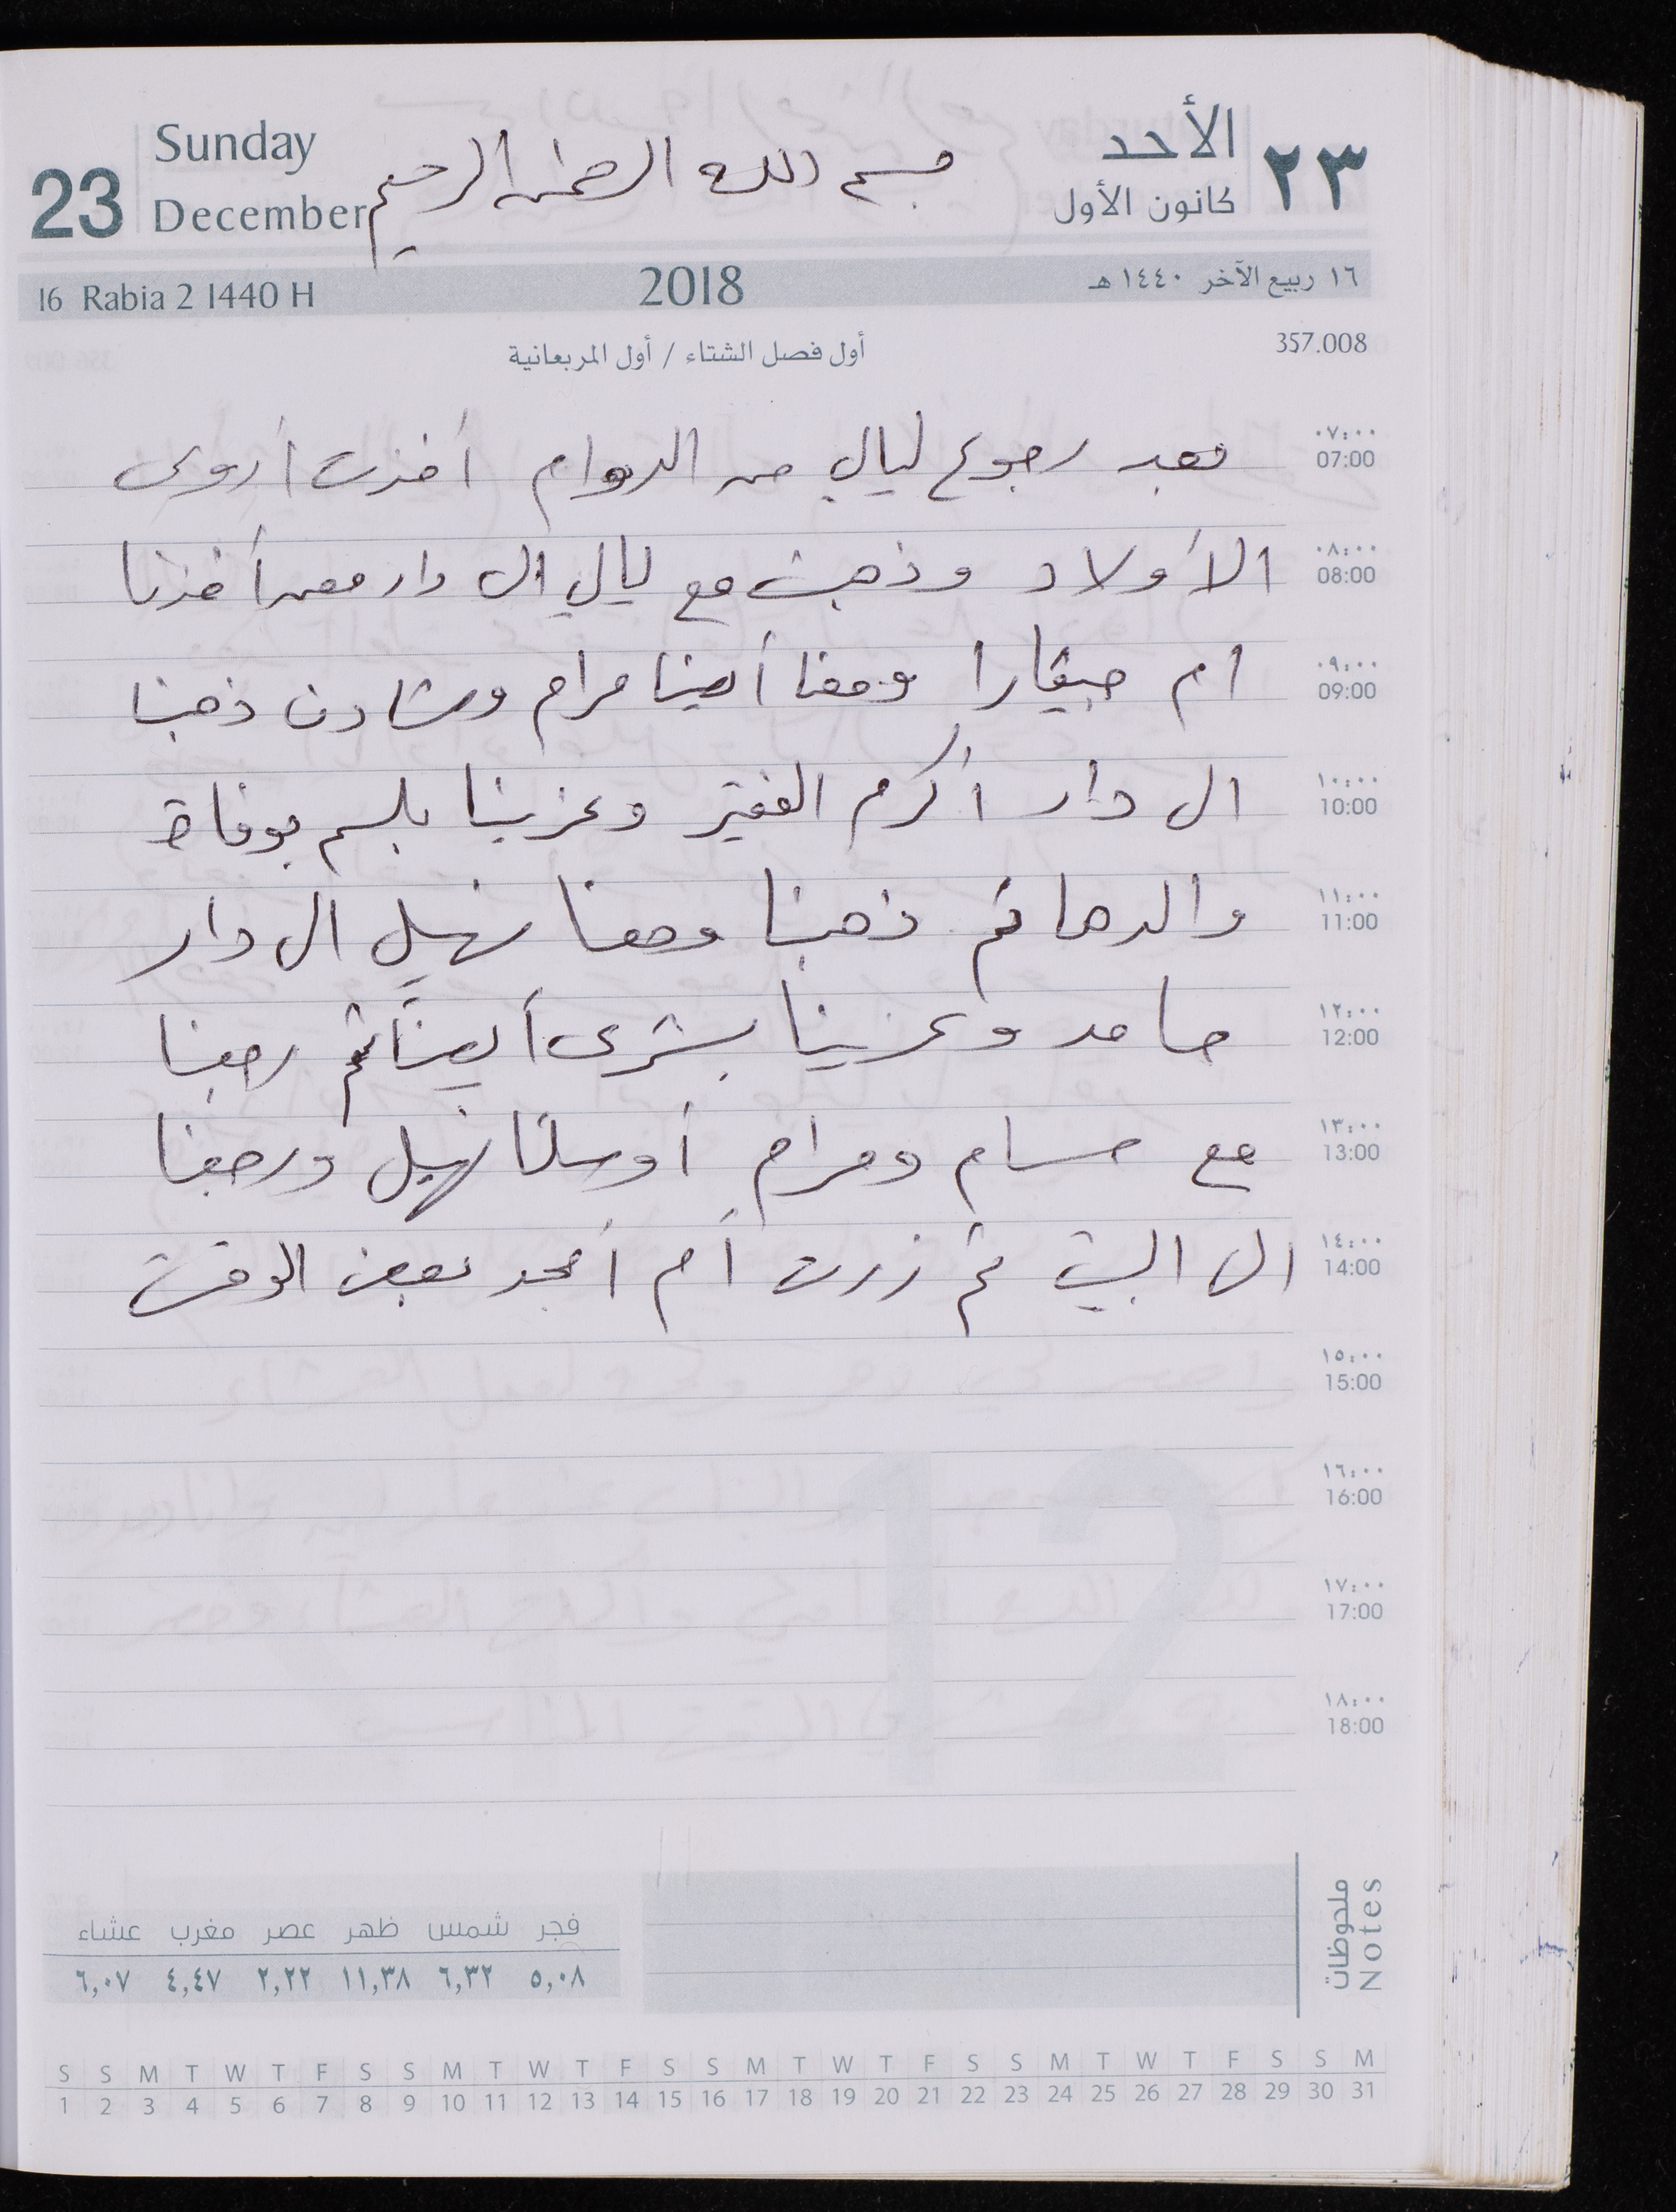 الأحد ٢٣
كانون الأول
23 Sunday
December
بسم الله الرحمن الرحيم
١٦ ربيع الآخر ١٤٤٠ هـ
2018
16 Rabia 2 1440 H
357.008
أول فصل الشتاء / أول المربعانية
٠٧:٠٠
07:00
بعد رجوع ليالي من الدوام أخذت أروى
٠٨:٠٠
08:00
الأولاد وذهبت مع ليالي الى دار معن أخذنا
٠٩:٠٠
09:00
ام جيفارا ومعنا أيضا مرام وشادن ذهبنا
١٠:٠٠
10:00
الى دار أكرم الفقيه وعزينا بلسم بوفاة
١١:٠٠
11:00
والدها ثم ذهبنا ومعنا نهيل الى دار
١٢:٠٠
12:00
حامد وعزينا بشرى أيضاً ثم رجعنا
١٣:٠٠
13:00
مع حسام ومرام أوصلنا نهيل ورجعنا
١٤:٠٠
14:00
الى البيت ثم زرت أم أمجد بعض الوقت
١٥:٠٠
15:00
١٦:٠٠
16:00
١٧:٠٠
17:00
١٨:٠٠
18:00
12
ملحوظات
Notes
فجر شمس ظهر عصر مغرب عشاء
٥,٠٨ ٦,٣٢ ١١,٣٨ ٢,٢٢ ٤,٤٧ ٦,٠٧
S S M T W T F S S M T W T F S S M T W T F S S M T W T F S S M
1 2 3 4 5 6 7 8 9 10 11 12 13 14 15 16 17 18 19 20 21 22 23 24 25 26 27 28 29 30 31